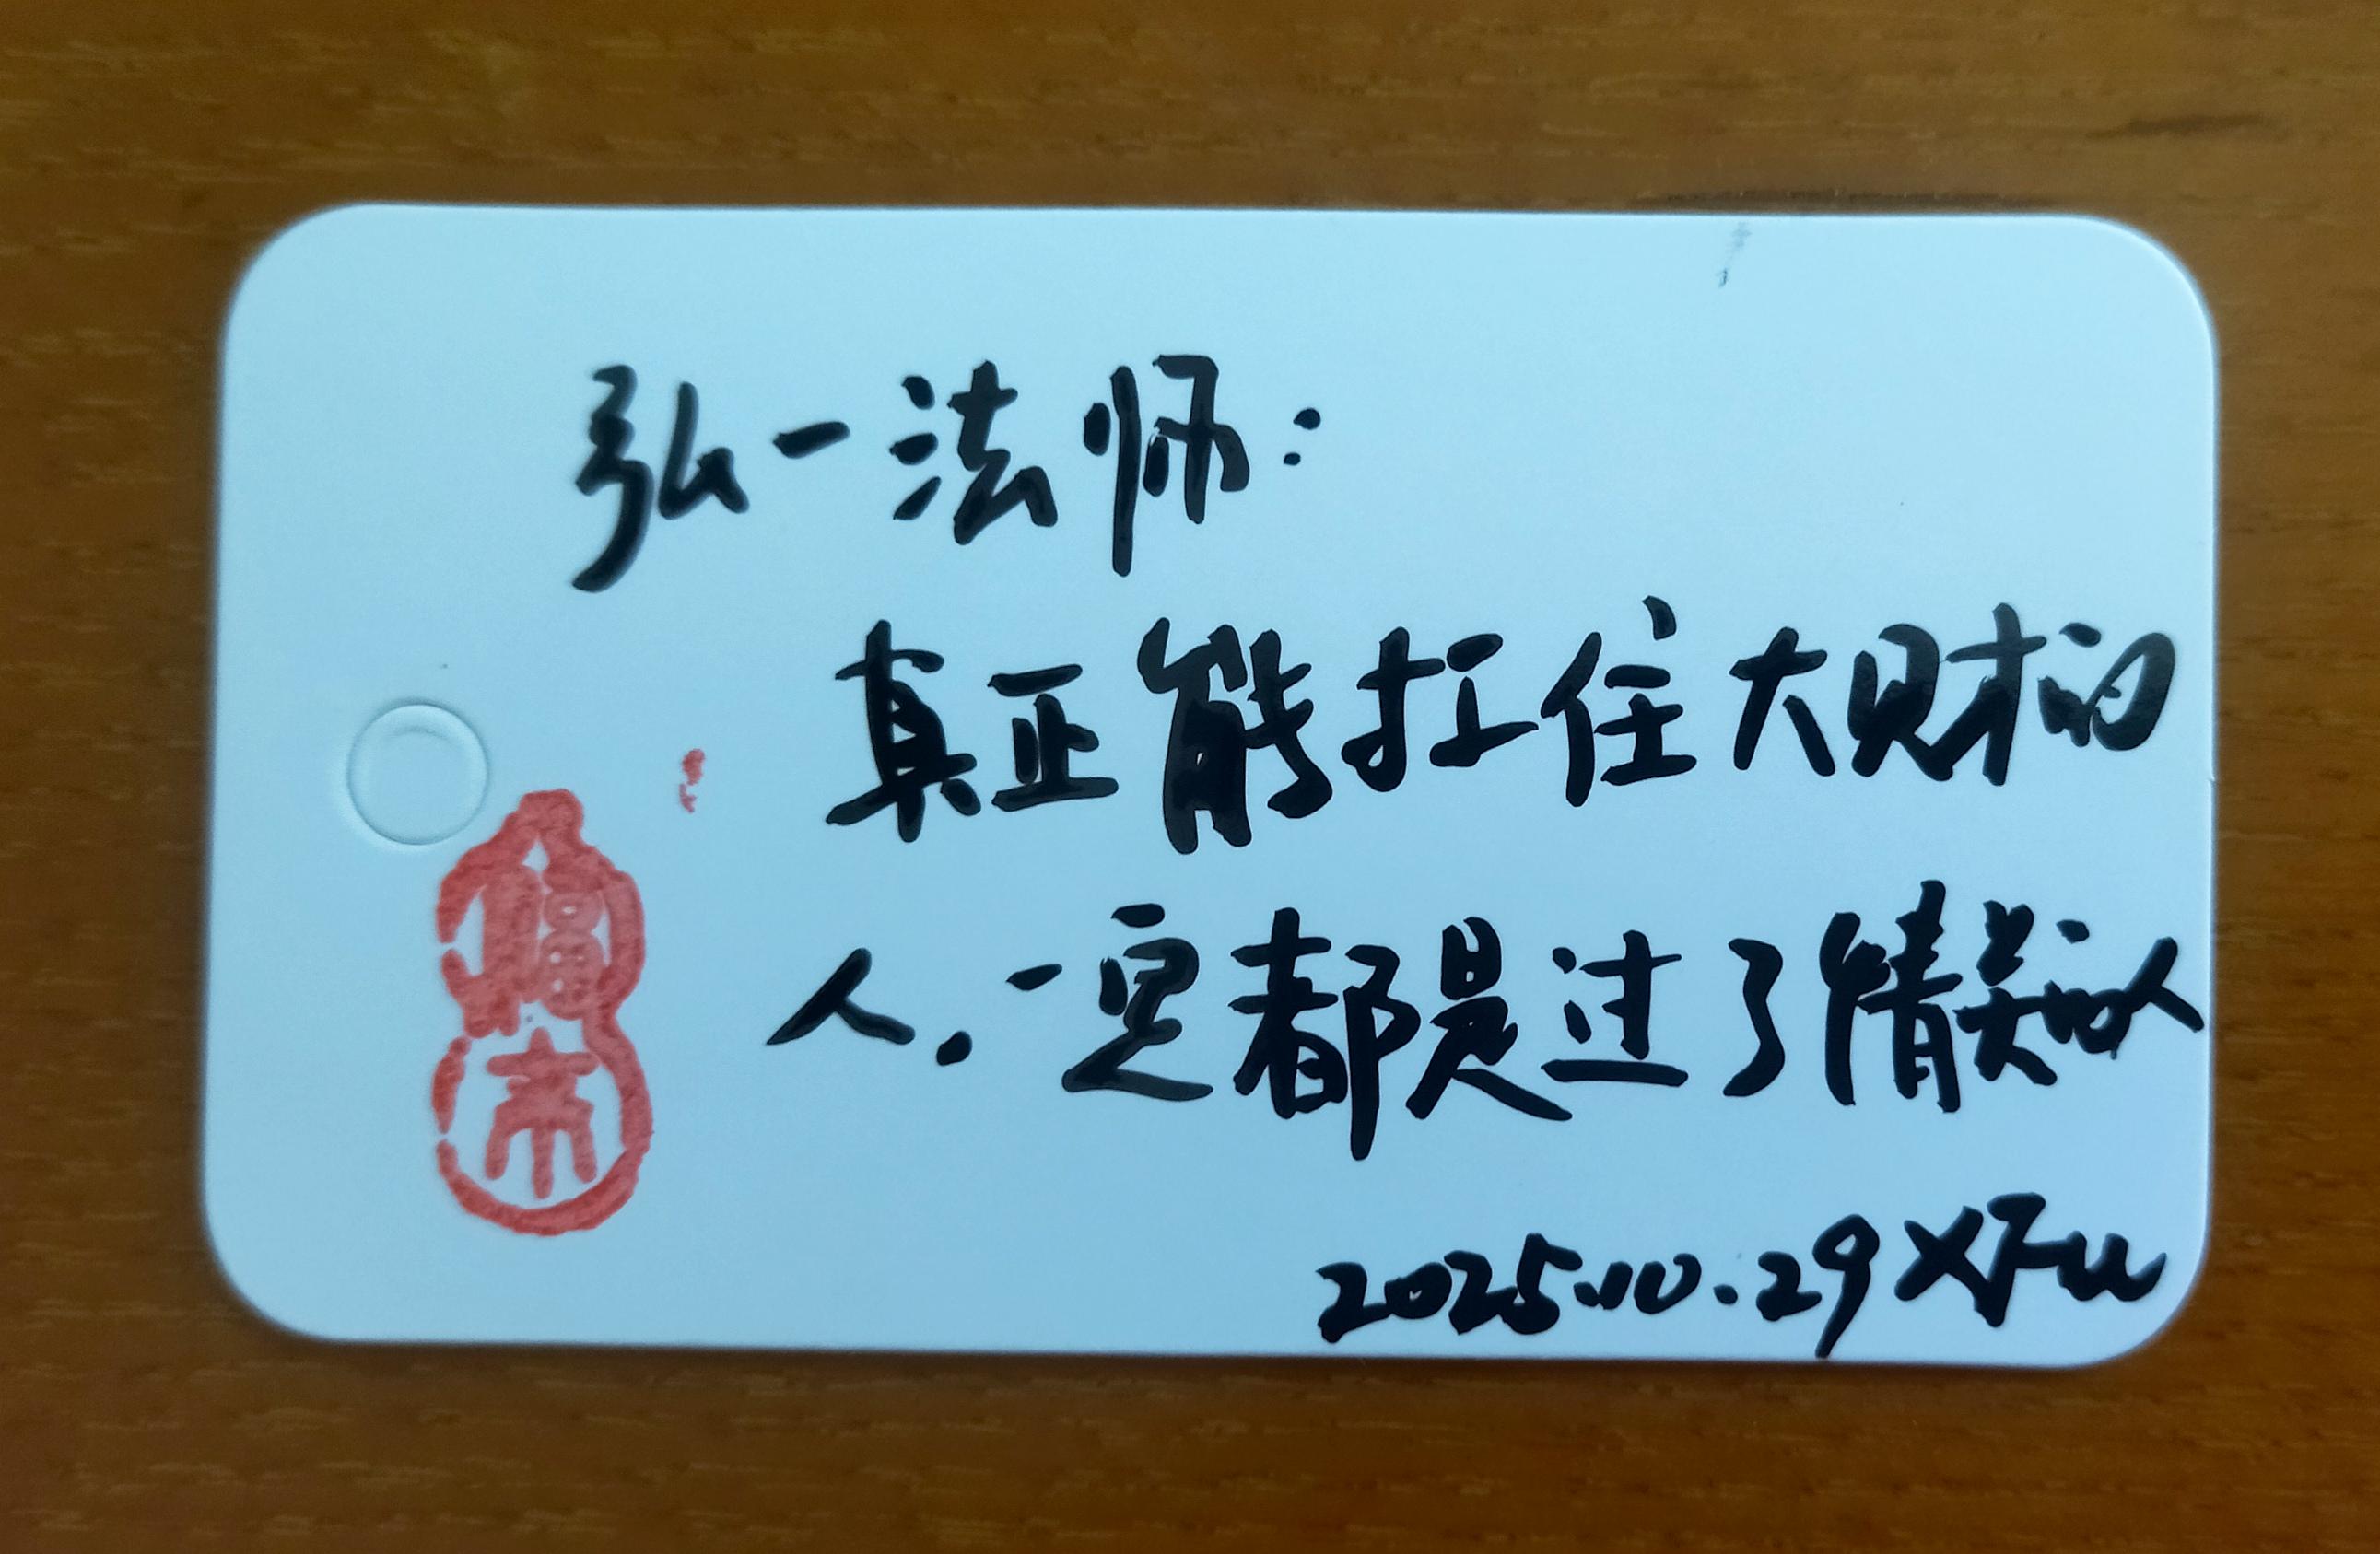 弘一法师:
真正能扛住大财的
人.一定都是过了情关的人
2025.10.29 XFu